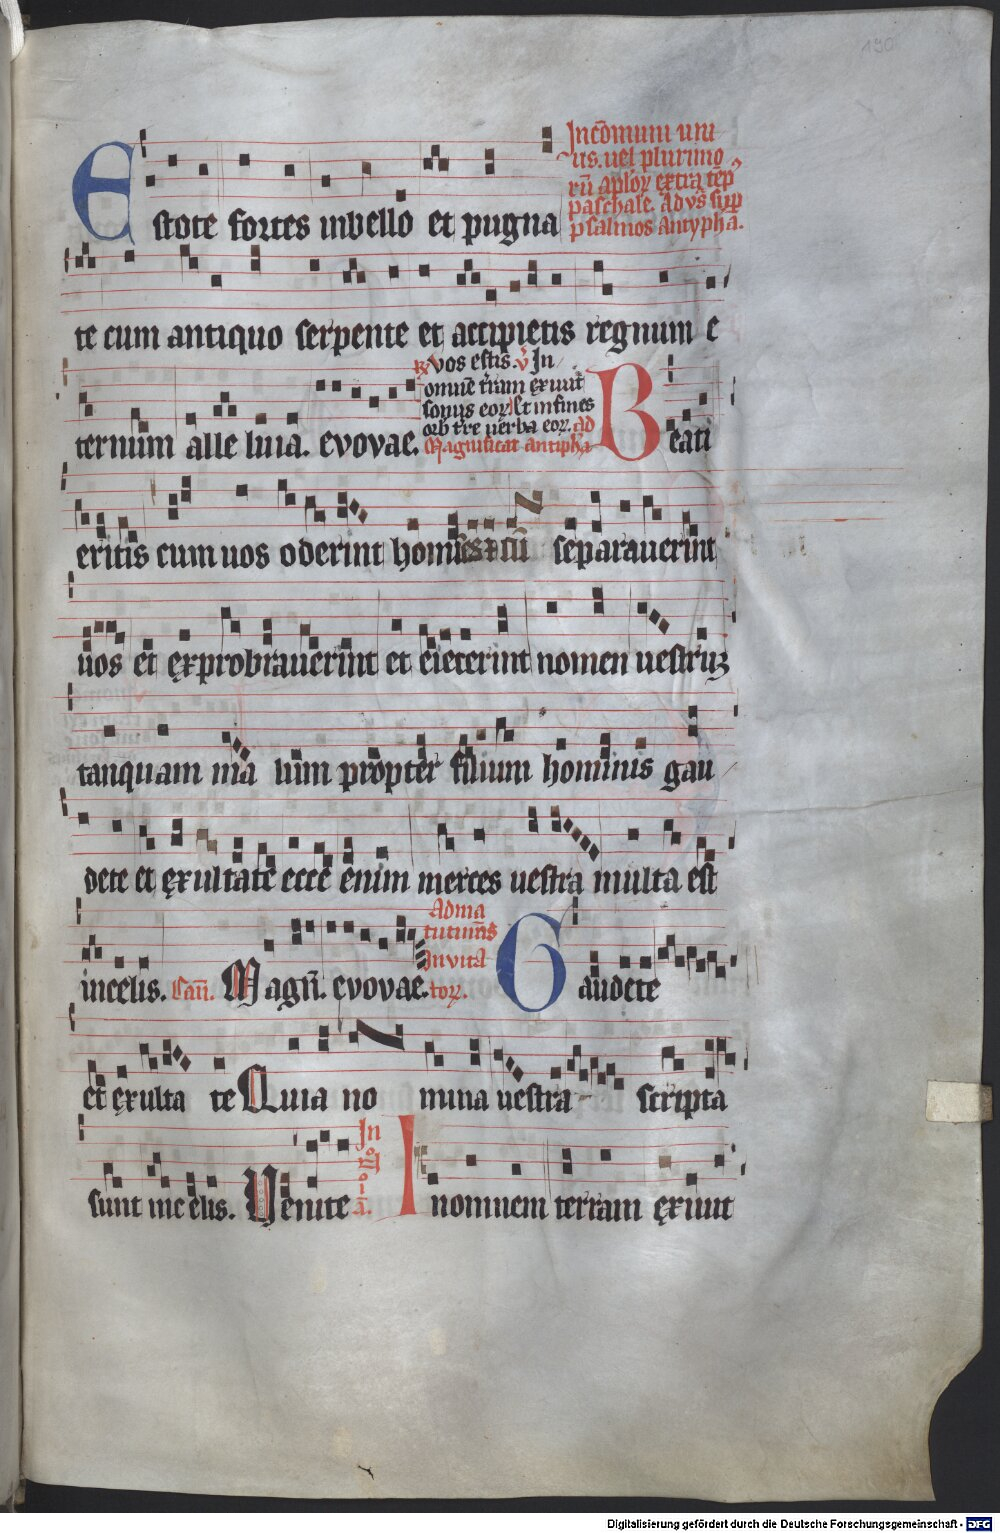 190
Incōmuni uni
us. uel plurimo
rū aplōꝝ extra tēp̄
paschale. Ad vs̄ sup̄
psalmos antypha.
Estote fortes inbello et pugna
te cum antiquo serpente et accipietis regnum e
ternum alle luia. evovae.
℟ Vos estis. ℣ In
omnē t̄ram exiuit
sonus eoꝝ Et infines
orb̄ tre uerba eoꝝ. Ad
Magnificat antipha
Beati
eritis cum uos oderint homīes ⁊ cū separauerint
uos et exprobrauerint et eiecerint nomen uestruꝫ
tanquam ma lum propter filium hominis gau
dete et exultate ecce enim merces uestra multa est
incelis. Cañ. Magñ. evovae.
Adma
tutinas
Invita
toꝝ.
Gaudete
et exulta te Quia no mina uestra scripta
sunt ince elis. Venite
In
oīa.
Inomnem terram exiuit
Digitalisierung gefördert durch die Deutsche Forschungsgemeinschaft - DFG